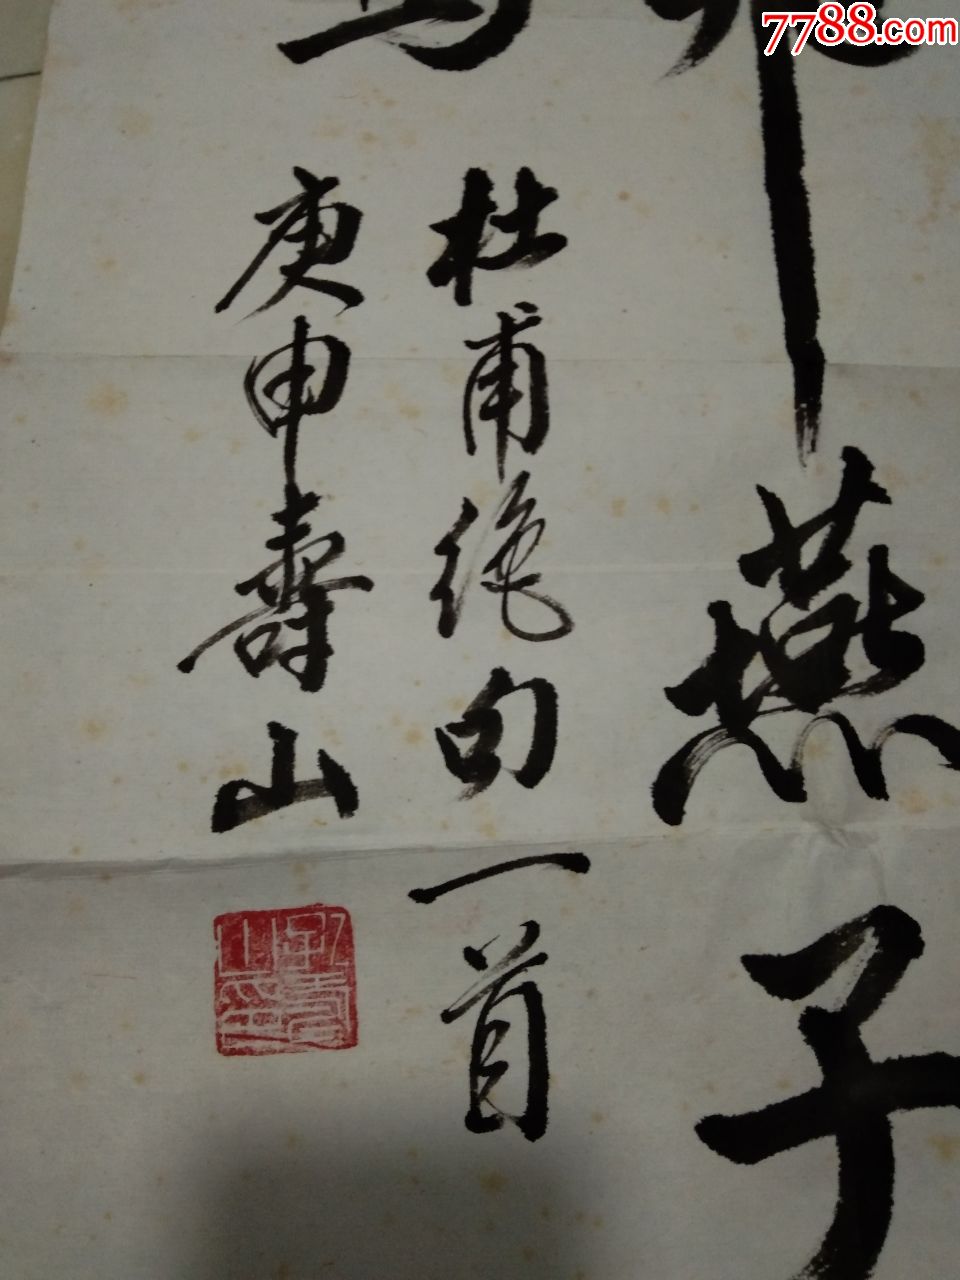 7788.com
燕子
杜甫絕句一首
庚申壽山